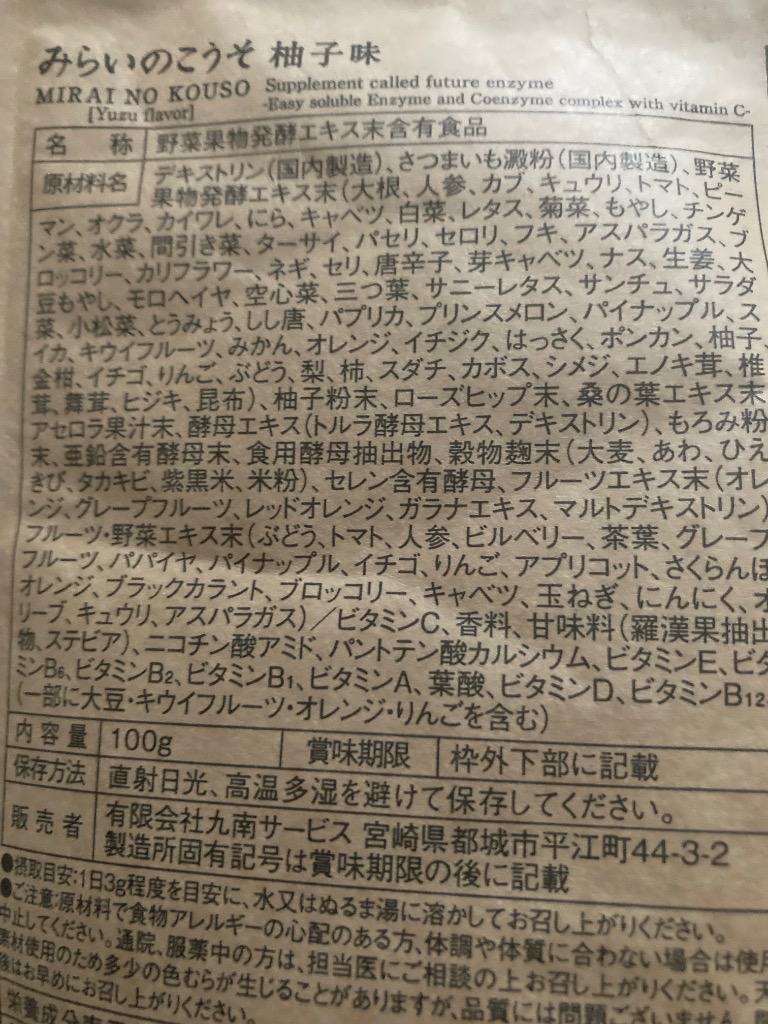 みらいのこうそ 柚子味
MIRAI NO KOUSO Supplement called future enzyme
[Yuzu flavor] -Easy soluble Enzyme and Coenzyme complex with vitamin C-
名 称 野菜果物発酵エキス末含有食品
原材料名 デキストリン(国内製造)、さつまいも澱粉(国内製造)、野菜
果物発酵エキス末(大根、人参、カブ、キュウリ、トマト、ピー
マン、オクラ、カイワレ、にら、キャベツ、白菜、レタス、菊菜、もやし、チンゲ
ン菜、水菜、間引き菜、ターサイ、パセリ、セロリ、フキ、アスパラガス、ブ
ロッコリー、カリフラワー、ネギ、セリ、唐辛子、芽キャベツ、ナス、生姜、大
豆もやし、モロヘイヤ、空心菜、三つ葉、サニーレタス、サンチュ、サラダ
菜、小松菜、とうみょう、しし唐、パプリカ、プリンスメロン、パイナップル、ス
イカ、キウイフルーツ、みかん、オレンジ、イチジク、はっさく、ポンカン、柚子、
金柑、イチゴ、りんご、ぶどう、梨、柿、スダチ、カボス、シメジ、エノキ茸、椎
茸、舞茸、ヒジキ、昆布)、柚子粉末、ローズヒップ末、桑の葉エキス末
アセロラ果汁末、酵母エキス(トルラ酵母エキス、デキストリン)、もろみ粉
末、亜鉛含有酵母末、食用酵母抽出物、穀物麹末(大麦、あわ、ひえ
きび、タカキビ、紫黒米、米粉)、セレン含有酵母、フルーツエキス末(オレ
ンジ、グレープフルーツ、レッドオレンジ、ガラナエキス、マルトデキストリン)
フルーツ・野菜エキス末(ぶどう、トマト、人参、ビルベリー、茶葉、グレープ
フルーツ、パパイヤ、パイナップル、イチゴ、りんご、アプリコット、さくらんぼ
オレンジ、ブラックカラント、ブロッコリー、キャベツ、玉ねぎ、にんにく、オ
リーブ、キュウリ、アスパラガス)／ビタミンC、香料、甘味料(羅漢果抽出
物、ステビア)、ニコチン酸アミド、パントテン酸カルシウム、ビタミンE、ビタ
ミンB6、ビタミンB2、ビタミンB1、ビタミンA、葉酸、ビタミンD、ビタミンB12
(一部に大豆・キウイフルーツ・オレンジ・りんごを含む)
内容量 100g 賞味期限 枠外下部に記載
保存方法 直射日光、高温多湿を避けて保存してください。
販売者 有限会社九南サービス 宮崎県都城市平江町44-3-2
製造所固有記号は賞味期限の後に記載
●摂取目安:1日3g程度を目安に、水又はぬるま湯に溶かしてお召し上がりください。
●ご注意:原材料で食物アレルギーの心配のある方、体調や体質に合わない場合は使用
中止してください。通院、服薬中の方は、担当医にご相談の上お召し上がりください。天
素材使用のため多少の色むらが生じることがありますが、品質には問題ございません。開
後はお早めにお召し上がりください。
栄養成分表